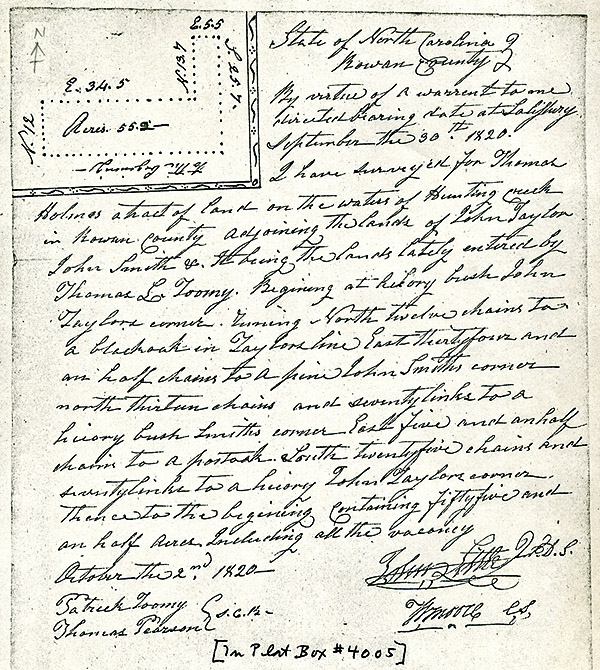 N
E. 5.5
N. 13.7
S. 25.7.
E. 34.5
N. 12
Acres. 55.2
To The Begining
State of North Carolina
Rowan County
By virtue of a warrent to me
directed bearing date at Salisbury
September the 30th 1820.
I have surveyed for Thomas
Holmes a tract of land on the waters of Hunting creek
in Rowan county adjoining the lands of John Taylor
John Smith &. It being the lands lately entired by
Thomas L. Toomy. Begining at hickory bush John
Taylors corner. runing North twelve chains to
a blackoak in Taylors line East thirtyfour and
an half chains to a pine John Smiths corner
north thirteen chains and seventy links to a
hicory bush Smiths corner East five and an half
chains to a postoak. South twentyfive chains and
seventylinks to a hicory John Taylors corner.
thence to the begining containing fiftyfive and
an half Acres. Including all the vacancy
October the 2nd. 1820
John D.S.
Patrick Toomy } S.C.B.
Thomas Pearson
Wmoore C.S.
[In Plat Box #4005]